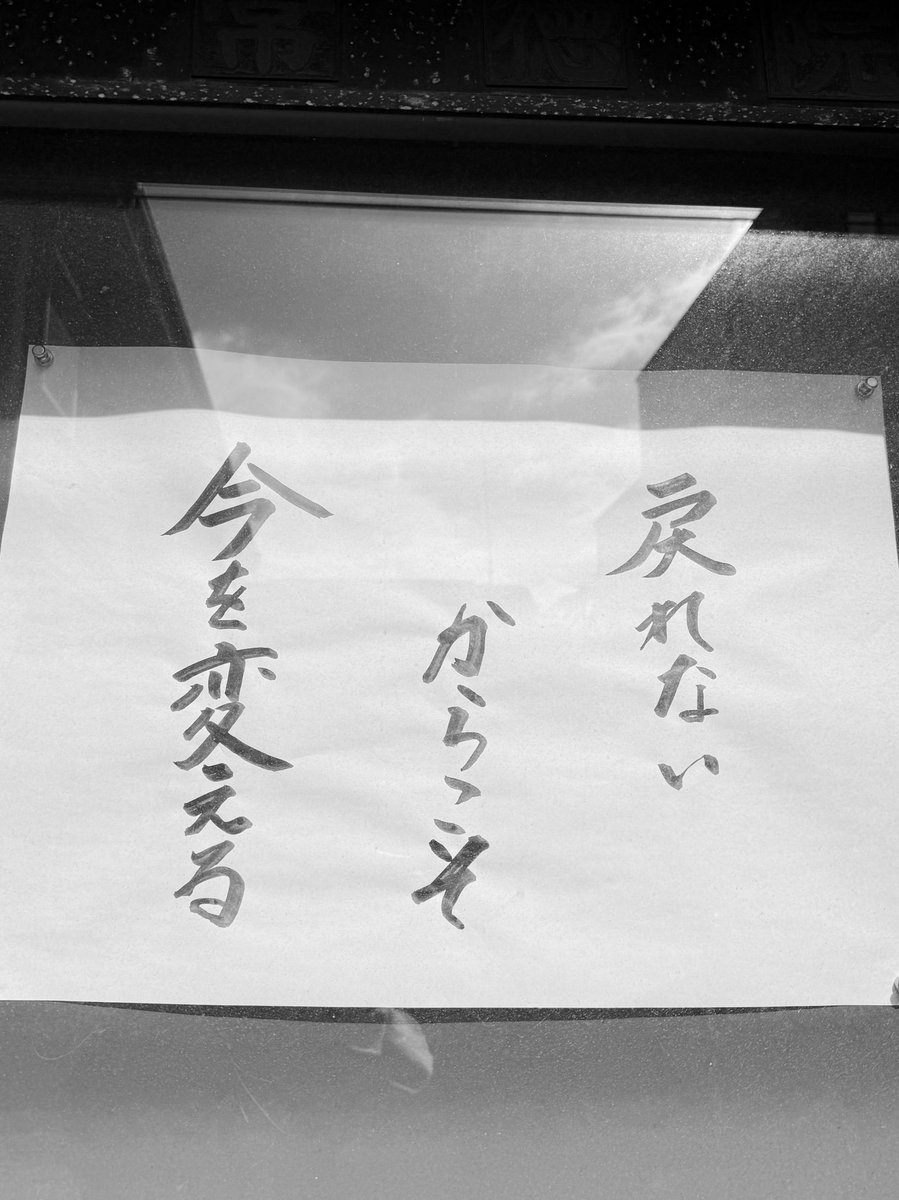 戻れない
からこそ
今を変える